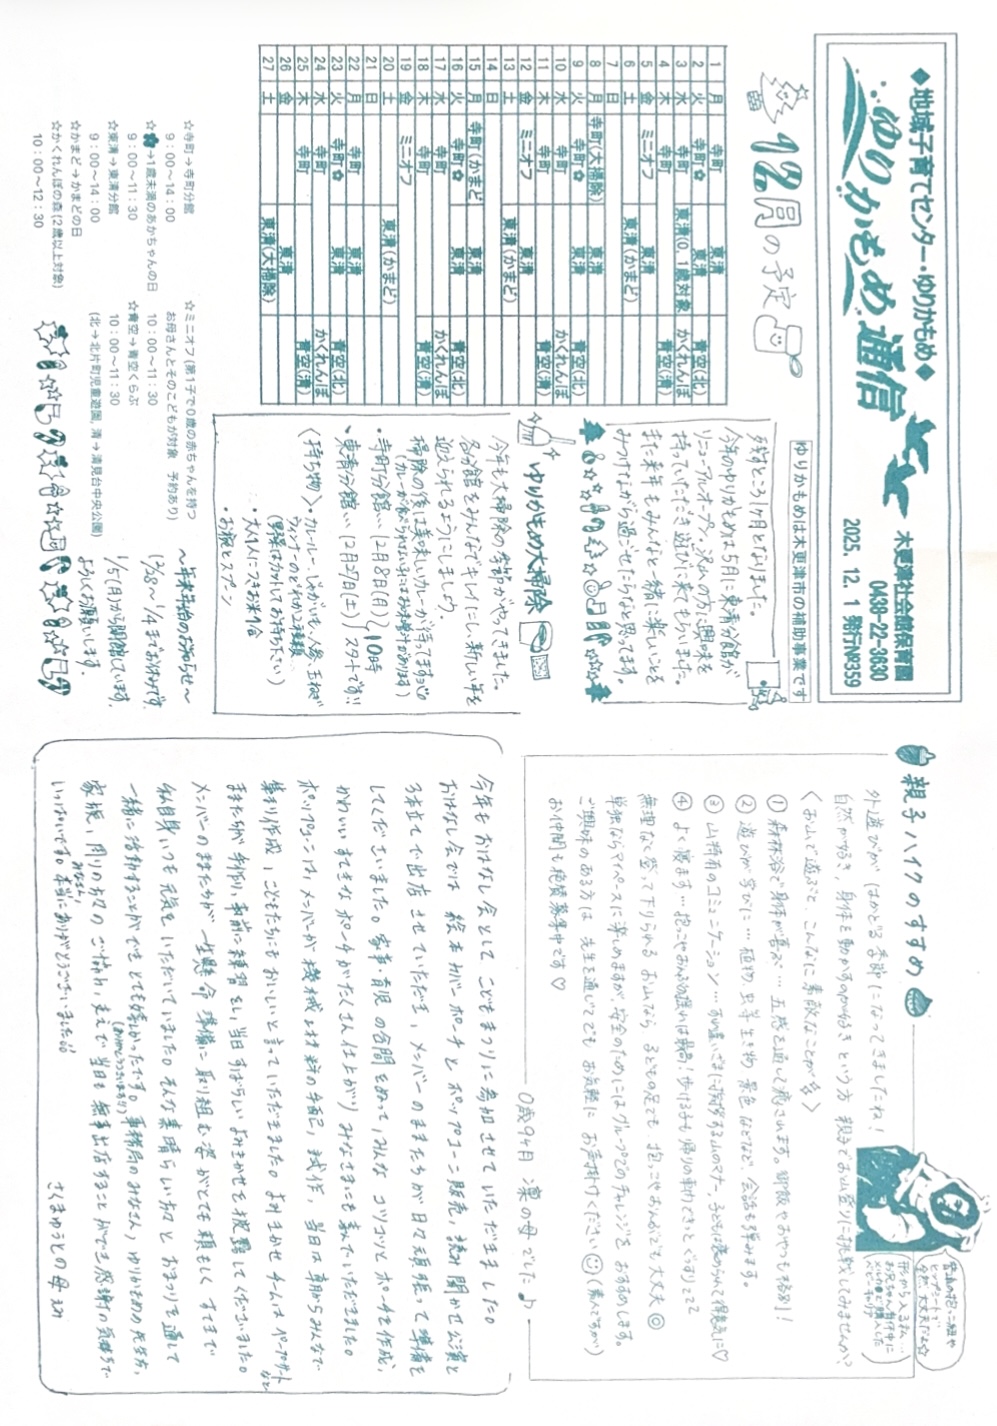 ◆地域子育てセンター・ゆりかもめ◆
ゆりかもめ通信
木更津社会館保育園
0438-22-3630
2025. 12. 1 発行№359
ゆりかもめは木更津市の補助事業です
12月の予定
1 月 寺町 東清
2 火 寺町✿ 東清 青空(北)
3 水 寺町 東清(0、1歳対象) かくれんぼ
4 木 寺町 青空(清)
5 金 ミニオフ 東清
6 土 東清(かまど)
7 日
8 月 寺町(大掃除) 東清
9 火 寺町✿ 東清 青空(北)
10 水 寺町 かくれんぼ
11 木 寺町 青空(清)
12 金 ミニオフ 東清
13 土 東清(かまど)
14 日
15 月 寺町(かまど) 東清
16 火 寺町✿ 東清 青空(北)
17 水 寺町 かくれんぼ
18 木 寺町 青空(清)
19 金 ミニオフ
20 土 東清(かまど)
21 日
22 月 寺町 東清
23 火 寺町✿ 東清 青空(北)
24 水 寺町 かくれんぼ
25 木 寺町 青空(清)
26 金 東清
27 土 東清(大掃除)
☆寺町→寺町分館
9：00～14：00
☆✿→1歳未満のあかちゃんの日
9：00～11：30
☆東清→東清分館
9：00～14：00
☆かまど→かまどの日
☆かくれんぼの森(2歳以上対象)
10：00～12：30
☆ミニオフ(第1子で0歳の赤ちゃんを持つ
お母さんとそのこどもが対象 予約あり)
10：00～11：30
☆青空→青空くらぶ
10：00～11：30
(北→北片町児童遊園、清→清見台中央公園)
残すところ1ヶ月となりました。
今年のゆりかもめは5月に東清分館が
リニューアルオープン。沢山の方に興味を
持っていただき遊びに来てもらいました。
また来年もみんなと一緒に楽しいことを
みつけながら過ごせたらなと思ってます。
ゆりかもめ大掃除
今年も大掃除の季節がやってきました。
各分館をみんなでキレイにし、新しい年を
迎えられるようにしましょう。
掃除の後には美味しいカレーが待ってますよ
・寺町分館… 12月8日(月)
・東清分館… 12月27日(土)
10時
スタートです!!
〈持ち物〉・カレールー、じゃがいも、人参、玉ねぎ
ウィンナーのどれか2種類
(野菜はカットしてお持ち下さい)
・大人1人につきお米1合
・お椀とスプーン
～年末年始のお知らせ～
12/28～1/4までお休みです。
1/5(月)から開館しています。
よろしくお願いします。
親子ハイクのすすめ
外遊びが はかどる季節になってきましたね！
自然が好き、身体を動かすのが好き という方 親子でお山登りに挑戦してみませんか？
〈お山で遊ぶと、こんなに素敵なことが〉
① 森林浴で身体が喜ぶ… 五感を通して癒されます。御飯やおやつも格別！
② 遊びが学びに… 植物、虫等生き物、景色などなど、会話も弾みます。
③ 山特有のコミュニケーション… すれ違いざまに挨拶する山のマナー。子どもは褒められて得意気に♡
④ よく寝ます… 抱っこやおんぶの揺れは最高！歩ける子も帰りの車できっとぐっすり
無理なく登って下りられる お山なら 子どもの足でも 抱っこやおんぶでも大丈夫◎
単独ならマイペースに楽しめますが、安全のためにはグループでのチャレンジを おすすめします。
ご興味のある方は 先生を通じてでも お気軽に お声掛けください☺
お仲間も絶賛募集中です♡
0歳9ヶ月 凜の母 でした♪
普通の抱っこ紐や
ヒップシートで
全然大丈夫だよ☆
今年もおはなし会として こどもまつりに参加させていただきました。
おはなし会では 絵本カバーポーチとポップコーン販売、読み聞かせ公演と
3本立てで出店させていただき、メンバーのままたちが日々元気張って準備を
してくださいました。家事・育児の合間をぬって、みんなコツコツとポーチを作成、
かわいいすてきなポーチがたくさん仕上がりみなさまにも喜んでいただきました。
ポップコーンは、メンバーが機械と材料の手配、試作、当日は朝からみんなで
集まり作成、こどもたちにもおいしいと言っていただきました。よみきかせチームは ペープサート
など
ままたちが手作り、事前に練習をし、当日すばらしいよみきかせを披露してくださいました。
メンバーのままたちが一生懸命準備に取り組む姿がとても頼もしく すてきで
私自身いつも元気をいただいていました。そんな素晴らしい方々と おまつりを通して
一緒に活動することができ とても嬉しかったです。事務局のみなさん、ゆりかもめの先生方、
家族、周りの方々の ご協力、支えで 当日も無事出店することができ感謝の気持ちで
いっぱいです。本当にありがとうございました!!
さくまゆうとの母